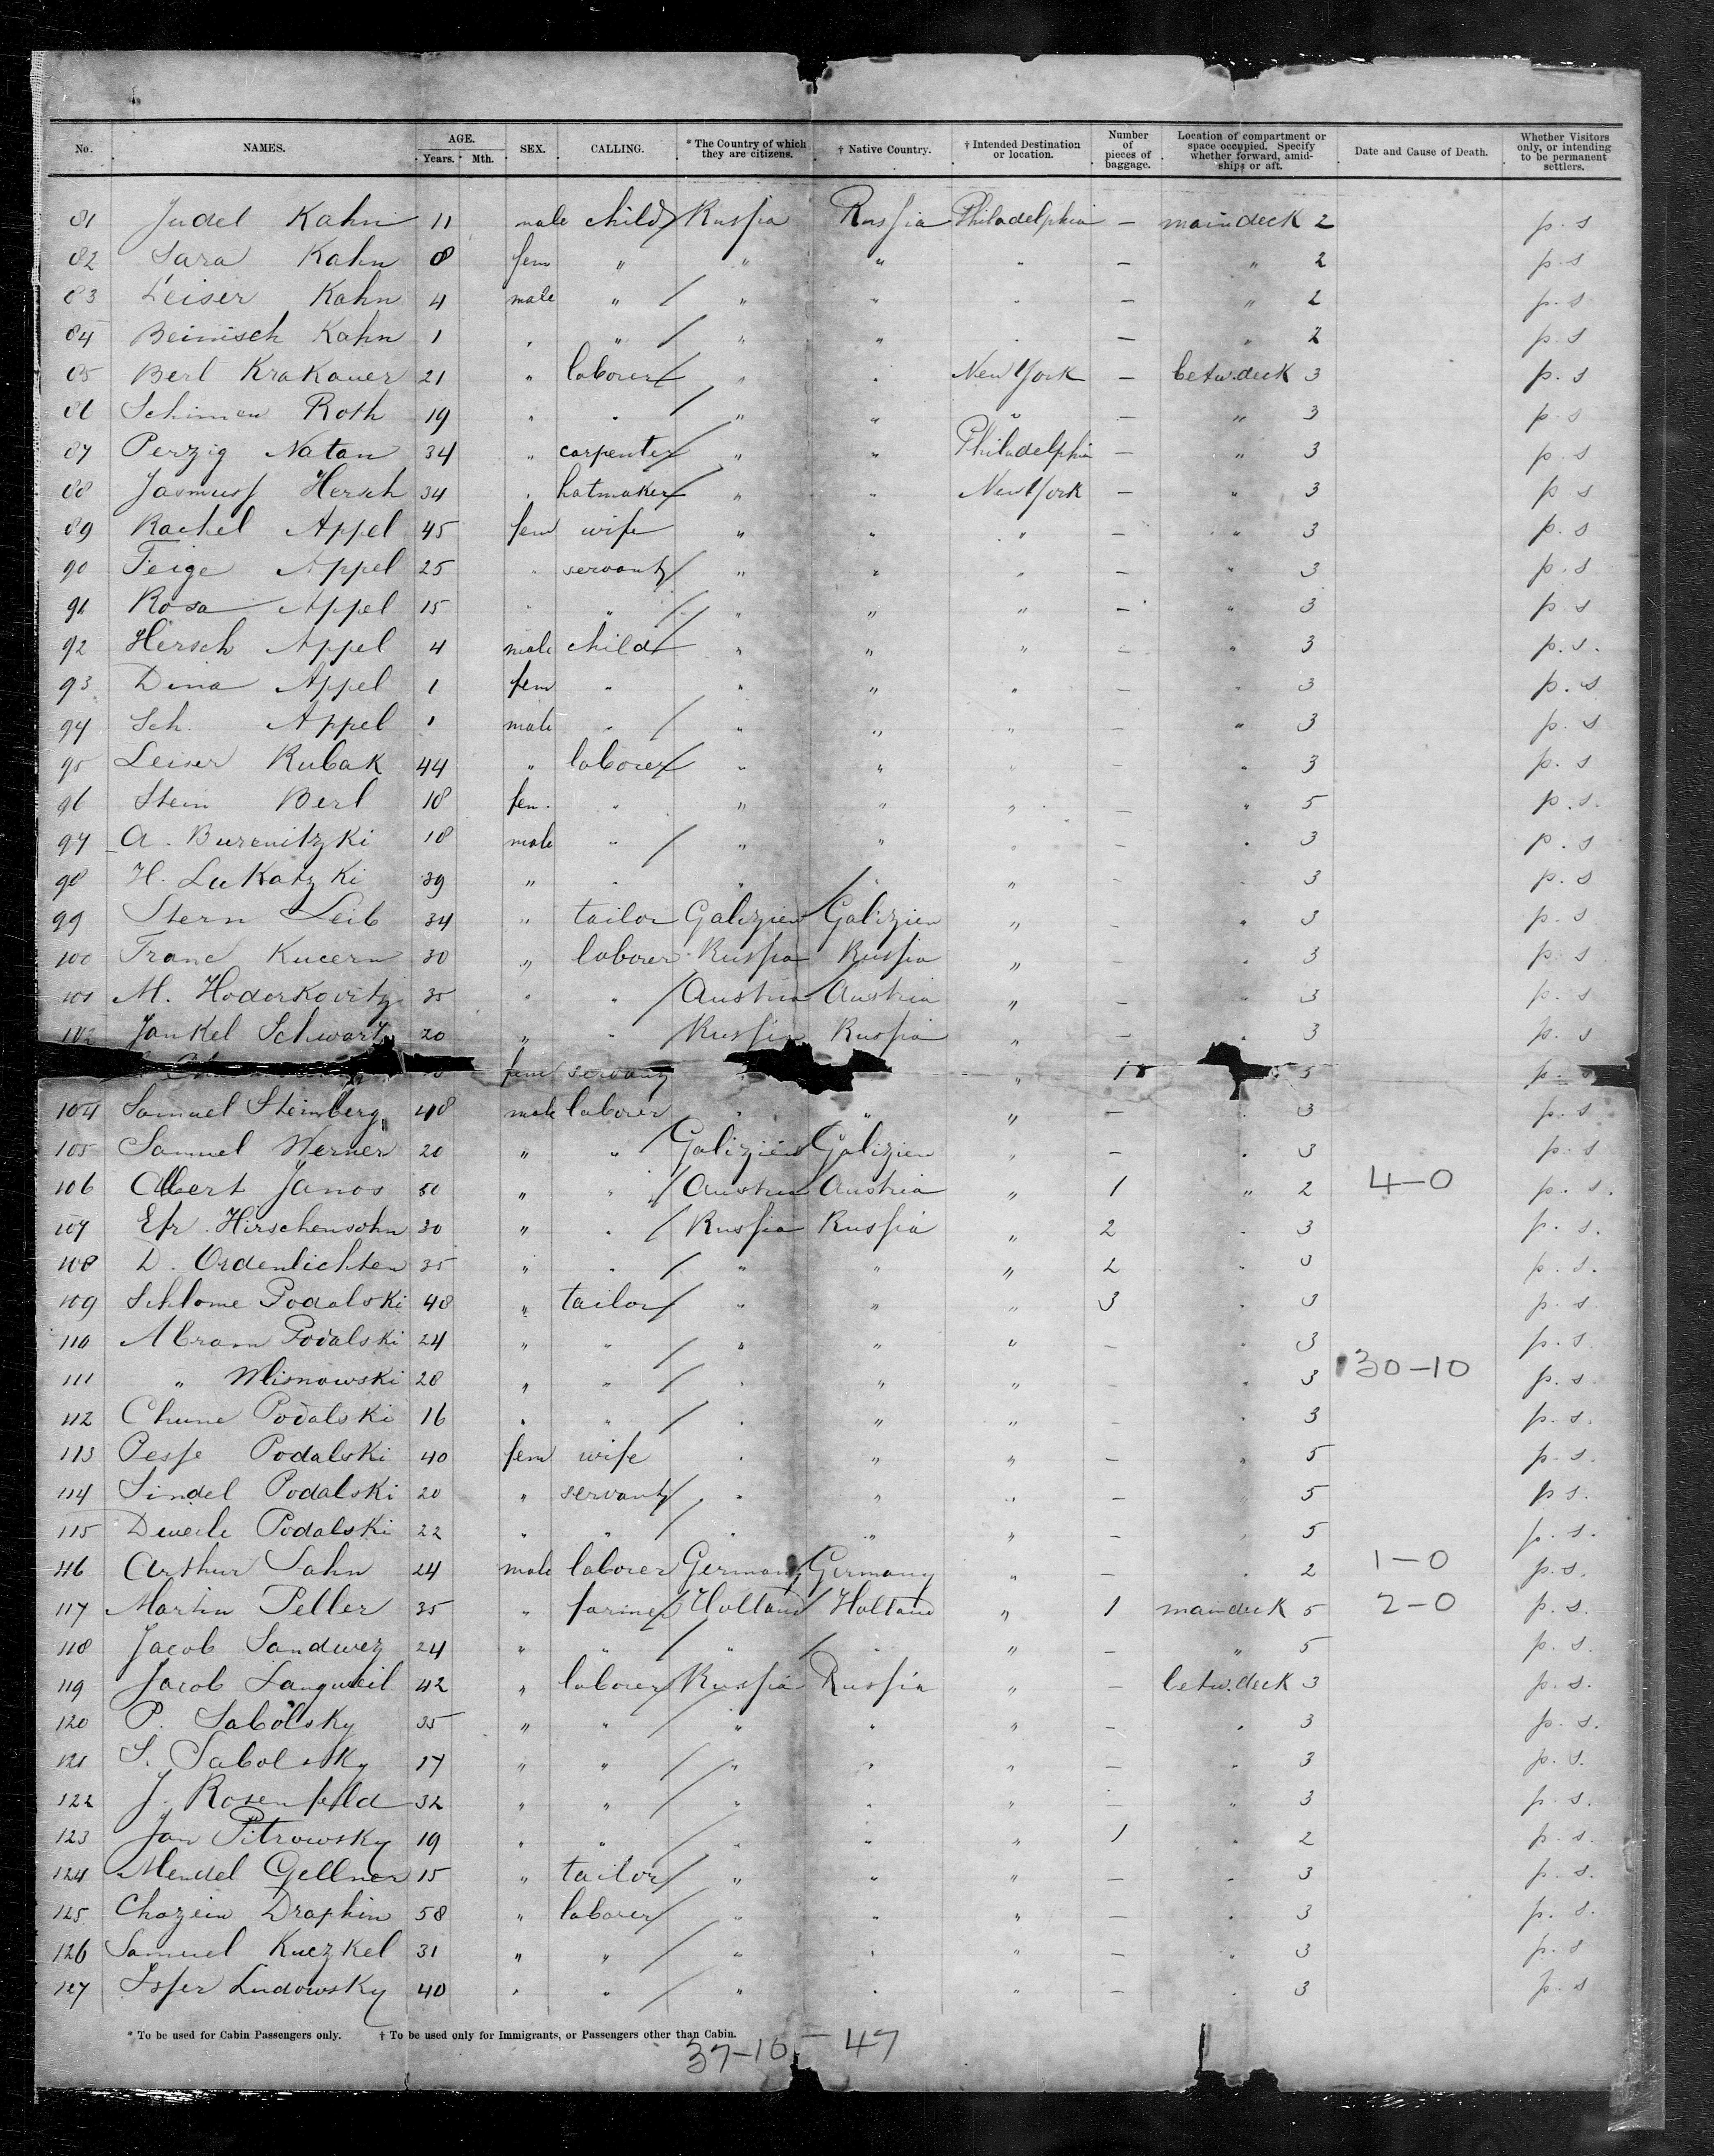 No. NAMES. AGE. Years. Mth. SEX. CALLING. * The Country of which they are citizens. † Native Country. † Intended Destination or location. Number of pieces of baggage. Location of compartment or space occupied. Specify whether forward, amidships or aft. Date and Cause of Death. Whether Visitors only, or intending to be permanent settlers.
81 Judel Kahn 11 male child Russia Russia Philadelphia — maindeck 2 p. s
82 Sara Kahn 8 fem " " " " — " 2 p. s
83 Leiser Kahn 4 male " " " " — " 2 p. s
84 Beinisch Kahn 1 " " " " " — " 2 p. s
85 Berl Krakauer 21 " laborer " " New York — betw.deck 3 p. s
86 Schimen Roth 19 " " " " " — " 3 p. s
87 Perzig Natan 34 " carpenter " " Philadelphia — " 3 p. s
88 Jasmuss Hersch 34 " hatmaker " " New York — " 3 p. s
89 Rachel Appel 45 fem wife " " " — " 3 p. s
90 Feige Appel 25 " servant " " " — " 3 p. s
91 Rosa Appel 15 " " " " " — " 3 p. s
92 Hersch Appel 4 male child " " " — " 3 p. s.
93 Dina Appel 1 fem " " " " — " 3 p. s
94 Sch. Appel 1 male " " " " — " 3 p. s
95 Leiser Rubak 44 " laborer " " " — " 3 p. s
96 Stein Berl 18 fem. " " " " — " 5 p. s.
97 A. Burenitzki 18 male " " " " — " 3 p. s
98 H. Lukatzki 39 " " " " " — " 3 p. s
99 Stern Leib 34 " tailor Galizien Galizien " — " 3 p. s
100 Franc Kucern 30 " laborer Russia Russia " — " 3 p. s
101 M. Hoderkovitz 35 " " Austria Austria " — " 3 p. s
102 Jankel Schwartz 20 " " Russia Russia " — " 3 p. s
fem servant " 1 5 p.
104 Samuel Steinberg 48 male laborer " " " — " 3 p. s
105 Samuel Werner 20 " " Galizien Galizien " — " 3 p. s
106 Albert Janos 50 " " Austria Austria " 1 " 2 4-0 p. s.
107 Efr. Hirschensohn 30 " " Russia Russia " 2 " 3 p. s.
108 D. Ordenlichten 35 " " " " " 2 " 3 p. s.
109 Schlome Podalski 48 " tailor " " " 3 " 3 p. s.
110 Abram Podalski 24 " " " " " — " 3 p. s.
111 " Mlisnowski 28 " " " " " — " 3 30-10 p. s.
112 Chune Podalski 16 " " " " " — " 3 p. s.
113 Pesse Podalski 40 fem wife " " " — " 5 p. s.
114 Sindel Podalski 20 " servant " " " — " 5 p s.
115 Dweile Podalski 22 " " " " " — " 5 p. s.
116 Arthur Sahn 24 male laborer Germany Germany " — " 2 1-0 p. s.
117 Martin Peller 35 " farmer Holland Holland " 1 maindeck 5 2-0 p. s.
118 Jacob Sandwez 24 " " " " " — " 5 p. s.
119 Jacob Langweil 42 " laborer Russia Russia " — betw.deck 3 p. s.
120 P. Sabolsky 35 " " " " " — " 3 p. s.
121 S. Sabolsky 17 " " " " " — " 3 p. s.
122 J. Rosenfeld 32 " " " " " — " 3 p. s.
123 Jan Pitrowsky 19 " " " " " 1 " 2 p. s.
124 Mendel Gellner 15 " tailor " " " — " 3 p. s.
125 Chazein Draphin 58 " laborer " " " — " 3 p. s.
126 Samuel Kuczkel 31 " " " " " — " 3 p. s
127 Isser Ludowsky 40 " " " " " — " 3 p. s
* To be used for Cabin Passengers only. † To be used only for Immigrants, or Passengers other than Cabin.
37-10 - 47